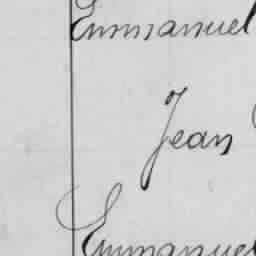 Emmanuel
Jean
Emmanuel